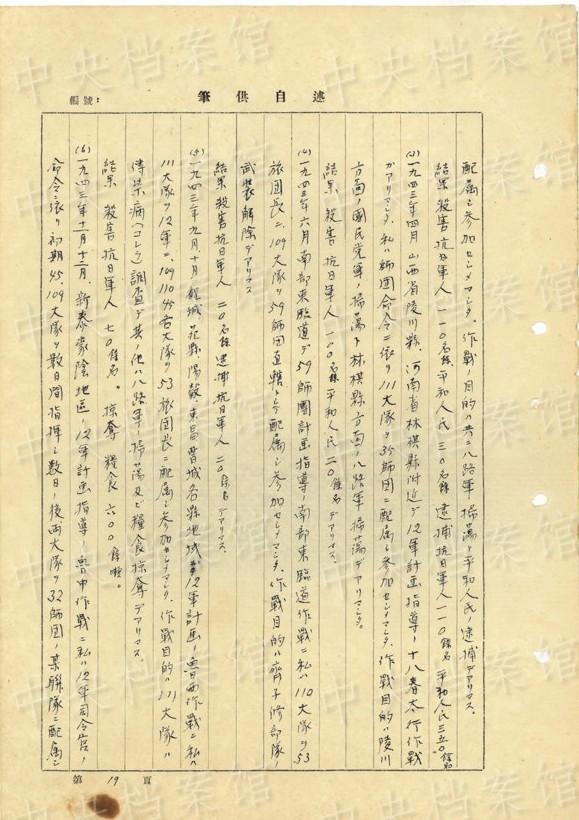 述自供筆
編號:
配属シ参加セシメマシタ、作戰ノ目的ハ共ニ八路軍ノ掃蕩ト平和人民ノ逮捕デアリマス。
結果 殺害抗日軍人 一一〇名餘 平和人民 三〇名餘 逮捕抗日軍人 一一〇餘名 平和人民 三五〇餘名
(3)一九四三年四月 山西省陵川縣、河南省林棋縣附近デ 12軍計画指導ノ 十八春太行作戰
ガアリマシタ、私ハ師團命令ニ依リ 111大隊ヲ35師団ニ配属シ参加セシメマシタ、作戰目的ハ陵川
方面ノ國民党軍ノ掃蕩ト林棋縣方面ノ八路軍掃蕩デアリマシタ。
結果 殺害抗日軍人 一〇〇名餘 平和人民 二〇餘名デアリマス、
(4)一九四三年六月南部東臨道デ59師團計画指導ノ南部東臨道作戰ニ私ハ110大隊ヲ53
旅団長ニ、109大隊ヲ59師団直轄トシテ配属シ参加セシメマシタ、作戰目的ハ齊子修部隊ノ
武装解除デアリマス
結果 殺害抗日軍人 二〇名餘 逮捕抗日軍人 二〇餘名デアリマス、
(5)一九四三年九月、十月 館城 范縣 陽穀 東昌 晋城各縣地域 12軍計画ノ魯西作戰ニ私ハ
111大隊ヲ12軍ニ、109 110 45各大隊ヲ53旅団長ニ配属シ参加セシメマシタ、作戰目的ハ111大隊ハ
傳染病(コレラ)調査デ其ノ他ハ八路軍ノ掃蕩及ビ糧食掠奪デアリマス。
結果 殺害抗日軍人 七〇餘名。 掠奪 糧食 六〇〇餘噸。
(6)一九四三年十一月十二月、新泰蒙陰地區ノ12軍計画指導ノ魯中作戰ニ私ハ12軍司令官ノ
命令ニ依リ初期45、109大隊ヲ数日間指揮シ数日ノ後両大隊ヲ32師団ノ某聯隊ニ配属シ
第 19 頁